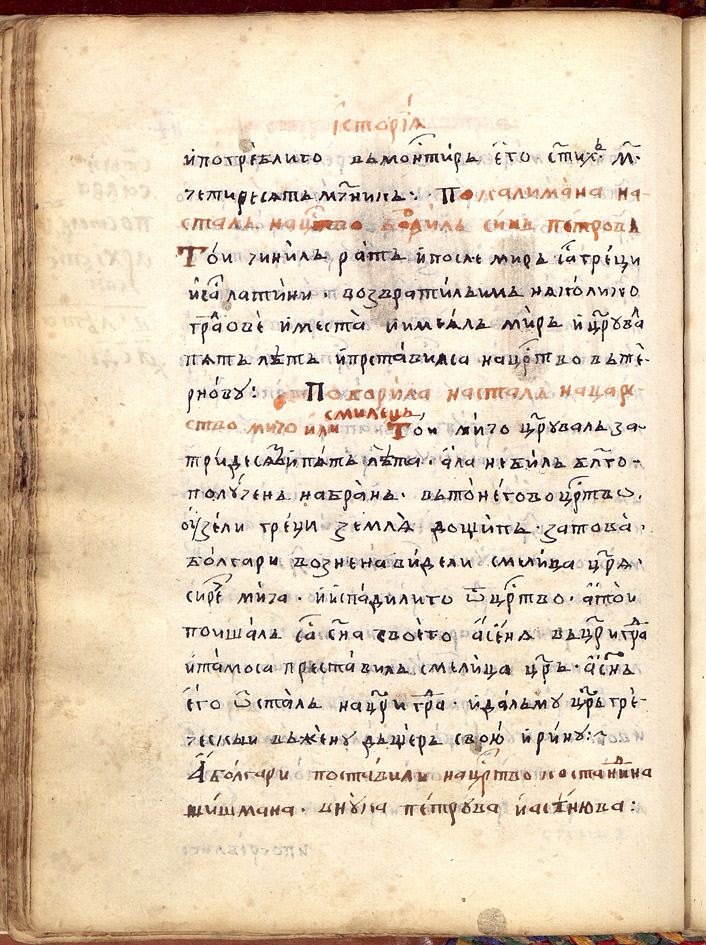 їсторїѧ
и҆потреблито въмон҆тирь е҆го ст҃их м҃.
четиресять му҃чникь: По калимана на-
сталь нацр҃тво водиль синь петровъ
Той чиниль рать и҆после мирь са греци
и҆са латини · возвратильимь неколико
градове и҆места и҆имеаль мирь и҆цр҃ува
пять лѣть и҆преставилса нацр҃тво вътѐ-
рнову: По борила насталь нацар
ство мичо или смилець, Той мичо цр҃уваль за-
тридесять и҆пять лѣта · а҆ла не биль бл҃го-
полученъ набрань · вътонеговоцр҃тво.
ѹзели греци землѧ доципь · затова ·
болгари возненавидели смелица цр҃ѧ ·
сирѐч мича · и҆испадилито ѿцр҃тво · а҆той
поишаль са сн҃а своего а҆сѣнѧ въцр҃играда
и҆тамоса преставиль смелица цр҃ь · а҆сѣнь
е҆го ѡсталь нацр҃играда · и҆дальму цр҃ь грѐ-
ческыи въжену дъщерь свою и҆рину:
А҆болгари поставили нацр҃тво костанъдина
шишмана · внука петрува и҆асѣнюва: